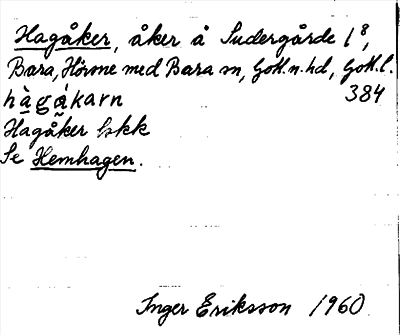 Hagåker, åker å Sudergårde 1⁸,
Bara, Hörsne med Bara sn, Gotl. n. hd, Gotl. l.
hàgákarn 384
Hagåker lskk
Se Hemhagen.
Inger Eriksson 1960